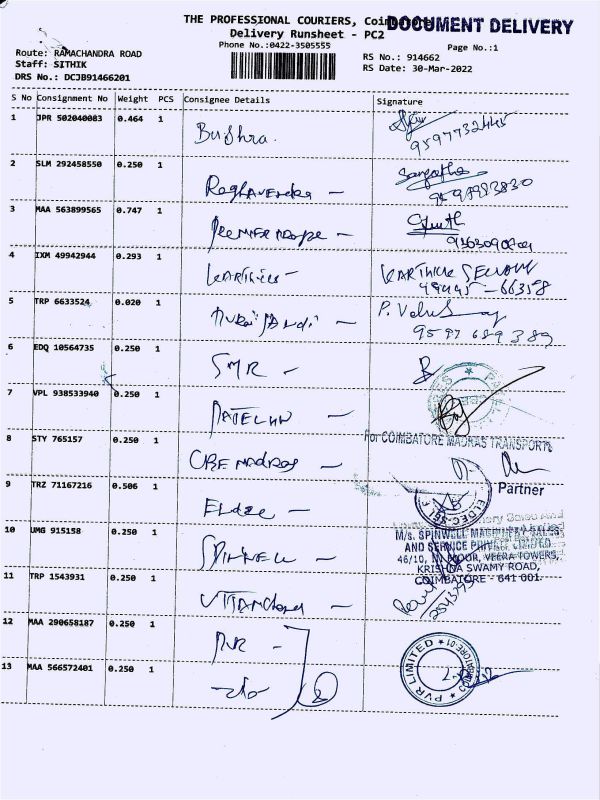 THE PROFESSIONAL COURIERS, Coimbatore
DOCUMENT DELIVERY
Delivery Runsheet - PC2
Phone No.:0422-3505555
Page No.:1
Route: RAMACHANDRA ROAD
RS No.: 914662
Staff: SITHIK
RS Date: 30-Mar-2022
DRS No.: DCJB91466201
S No Consignment No Weight PCS Consignee Details Signature
1 JPR 502040083 0.464 1 Bushra.
2 SLM 292458550 0.250 1 Raghavendra - Sangatha
3 MAA 563899565 0.747 1
4 IXM 49942944 0.293 1 Karthick - KARTHICK
99445-66358
5 TRP 6633524 0.020 1 P.
9597689389
6 EDQ 10564735 0.250 1 SMR -
7 VPL 938533940 0.250 1 -
For COIMBATORE MADRAS TRANSPORTS
8 STY 765157 0.250 1 CBE Madras -
Partner
9 TRZ 71167216 0.506 1 -
ELDEC-SEI
10 UMG 915158 0.250 1 Spinwell -
M/s. SPINWELL MACHINERY SALES
AND SERVICE PRIVATE LIMITED
46/10, VEERA TOWERS,
KRISHNA SWAMY ROAD,
COIMBATORE - 641 001.
11 TRP 1543931 0.250 1 -
12 MAA 290658187 0.250 1 PVR -
PVR LIMITED * COIMBATORE-01 *
13 MAA 566572401 0.250 1